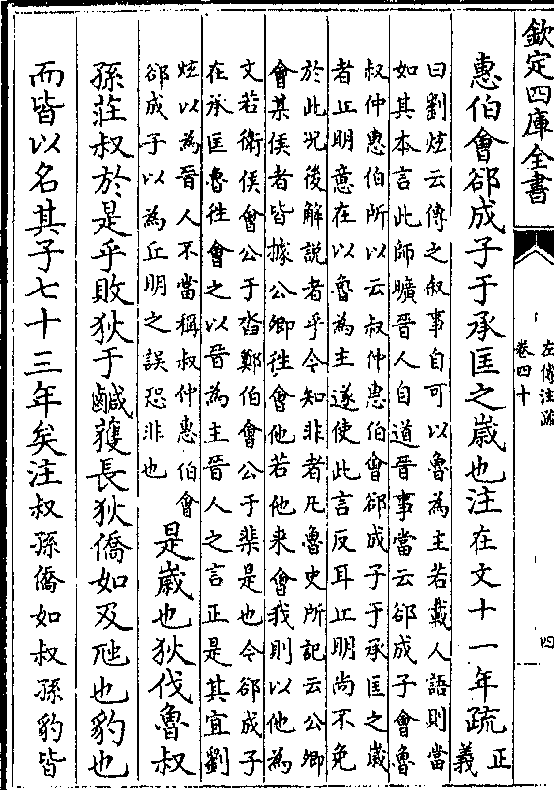 欽定四庫全書
左傳注疏
卷四十
四
惠伯會郤成子于承匡之歲也注在文十一年疏正
義
曰劉炫云傳之叙事自可以魯為主若載人語則當
如其本言此師曠晉人自道晉事當云郤成子會魯
叔仲惠伯所以云叔仲惠伯會郤成子于承匡之歲
者丘明意在以魯為主遂使此言反耳丘明尚不免
於此况後解說者乎今知非者凡魯史所記云公卿
會某侯者皆據公卿往會他若他来會我則以他為
文若衛侯會公于沓鄭伯會公于棐是也今郤成子
在承匡魯往會之以晉為主晉人之言正是其宜劉
炫以為晉人不當稱叔仲惠伯會
郤成子以為丘明之誤恐非也
是歲也狄伐魯叔
孫莊叔於是乎敗狄于鹹獲長狄僑如及虺也豹也
而皆以名其子七十三年矣注叔孫僑如叔孫豹皆